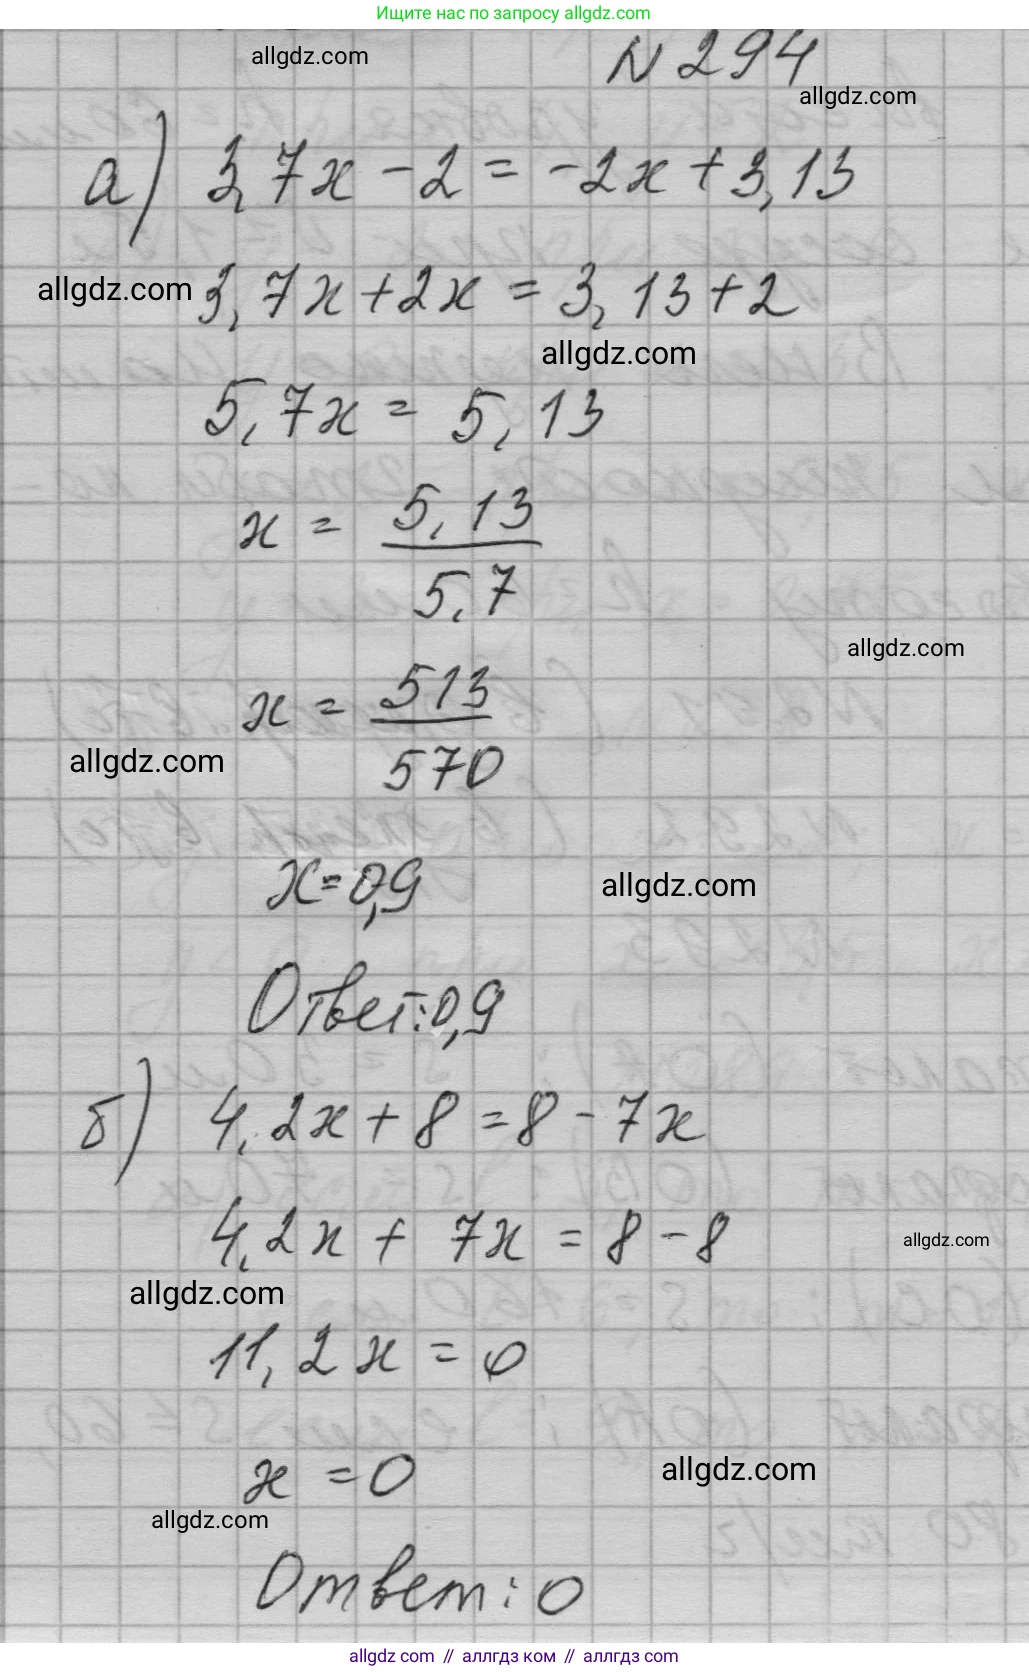 Ищите нас по запросу allgdz.com
allgdz.com
N 294
allgdz.com
а) 3,7x - 2 = -2x + 3,13
allgdz.com
3,7x + 2x = 3,13 + 2
allgdz.com
5,7x = 5,13
x = 5,13 / 5,7
allgdz.com
x = 513 / 570
allgdz.com
x = 0,9
allgdz.com
Ответ: 0,9
б) 4,2x + 8 = 8 - 7x
4,2x + 7x = 8 - 8
allgdz.com
allgdz.com
11,2x = 0
x = 0
allgdz.com
allgdz.com
Ответ: 0
allgdz.com // аллгдз ком // аллгдз.com